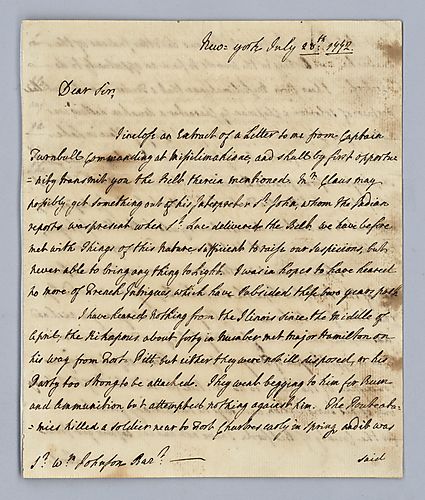 New=york July 28th. 1772
Dear Sir,
I inclose an Extract of a Letter to me from Captain
Turnbull Commanding at Missilimakinac, and shall by first opportu
=nity transmit you the Belt therein mentioned. Mr. Claus may
possibly get something out of his Interpreter St. John, whom the Indian
reports was present when St. Luc delivered the Belt. we have before
met with Things of this nature sufficient to raise our suspicions, but
never able to bring any thing to light. I was in hopes to have heared
no more of French Intrigues which have subsided these two years past.
I have heared nothing from the Ilinois since the middle of
April, the Kikapous about forty in Number met major Hamilton on
his way from Fort Pitt, but either they were not ill disposed, or his
Party too strong to be attacked. They went begging to him for Rum
and Ammunition but attempted nothing against him. The Pouteata=
=mies killed a soldier near to Fort Chartres early in spring, and it was
Sr. Wm. Johnson Bart.
said